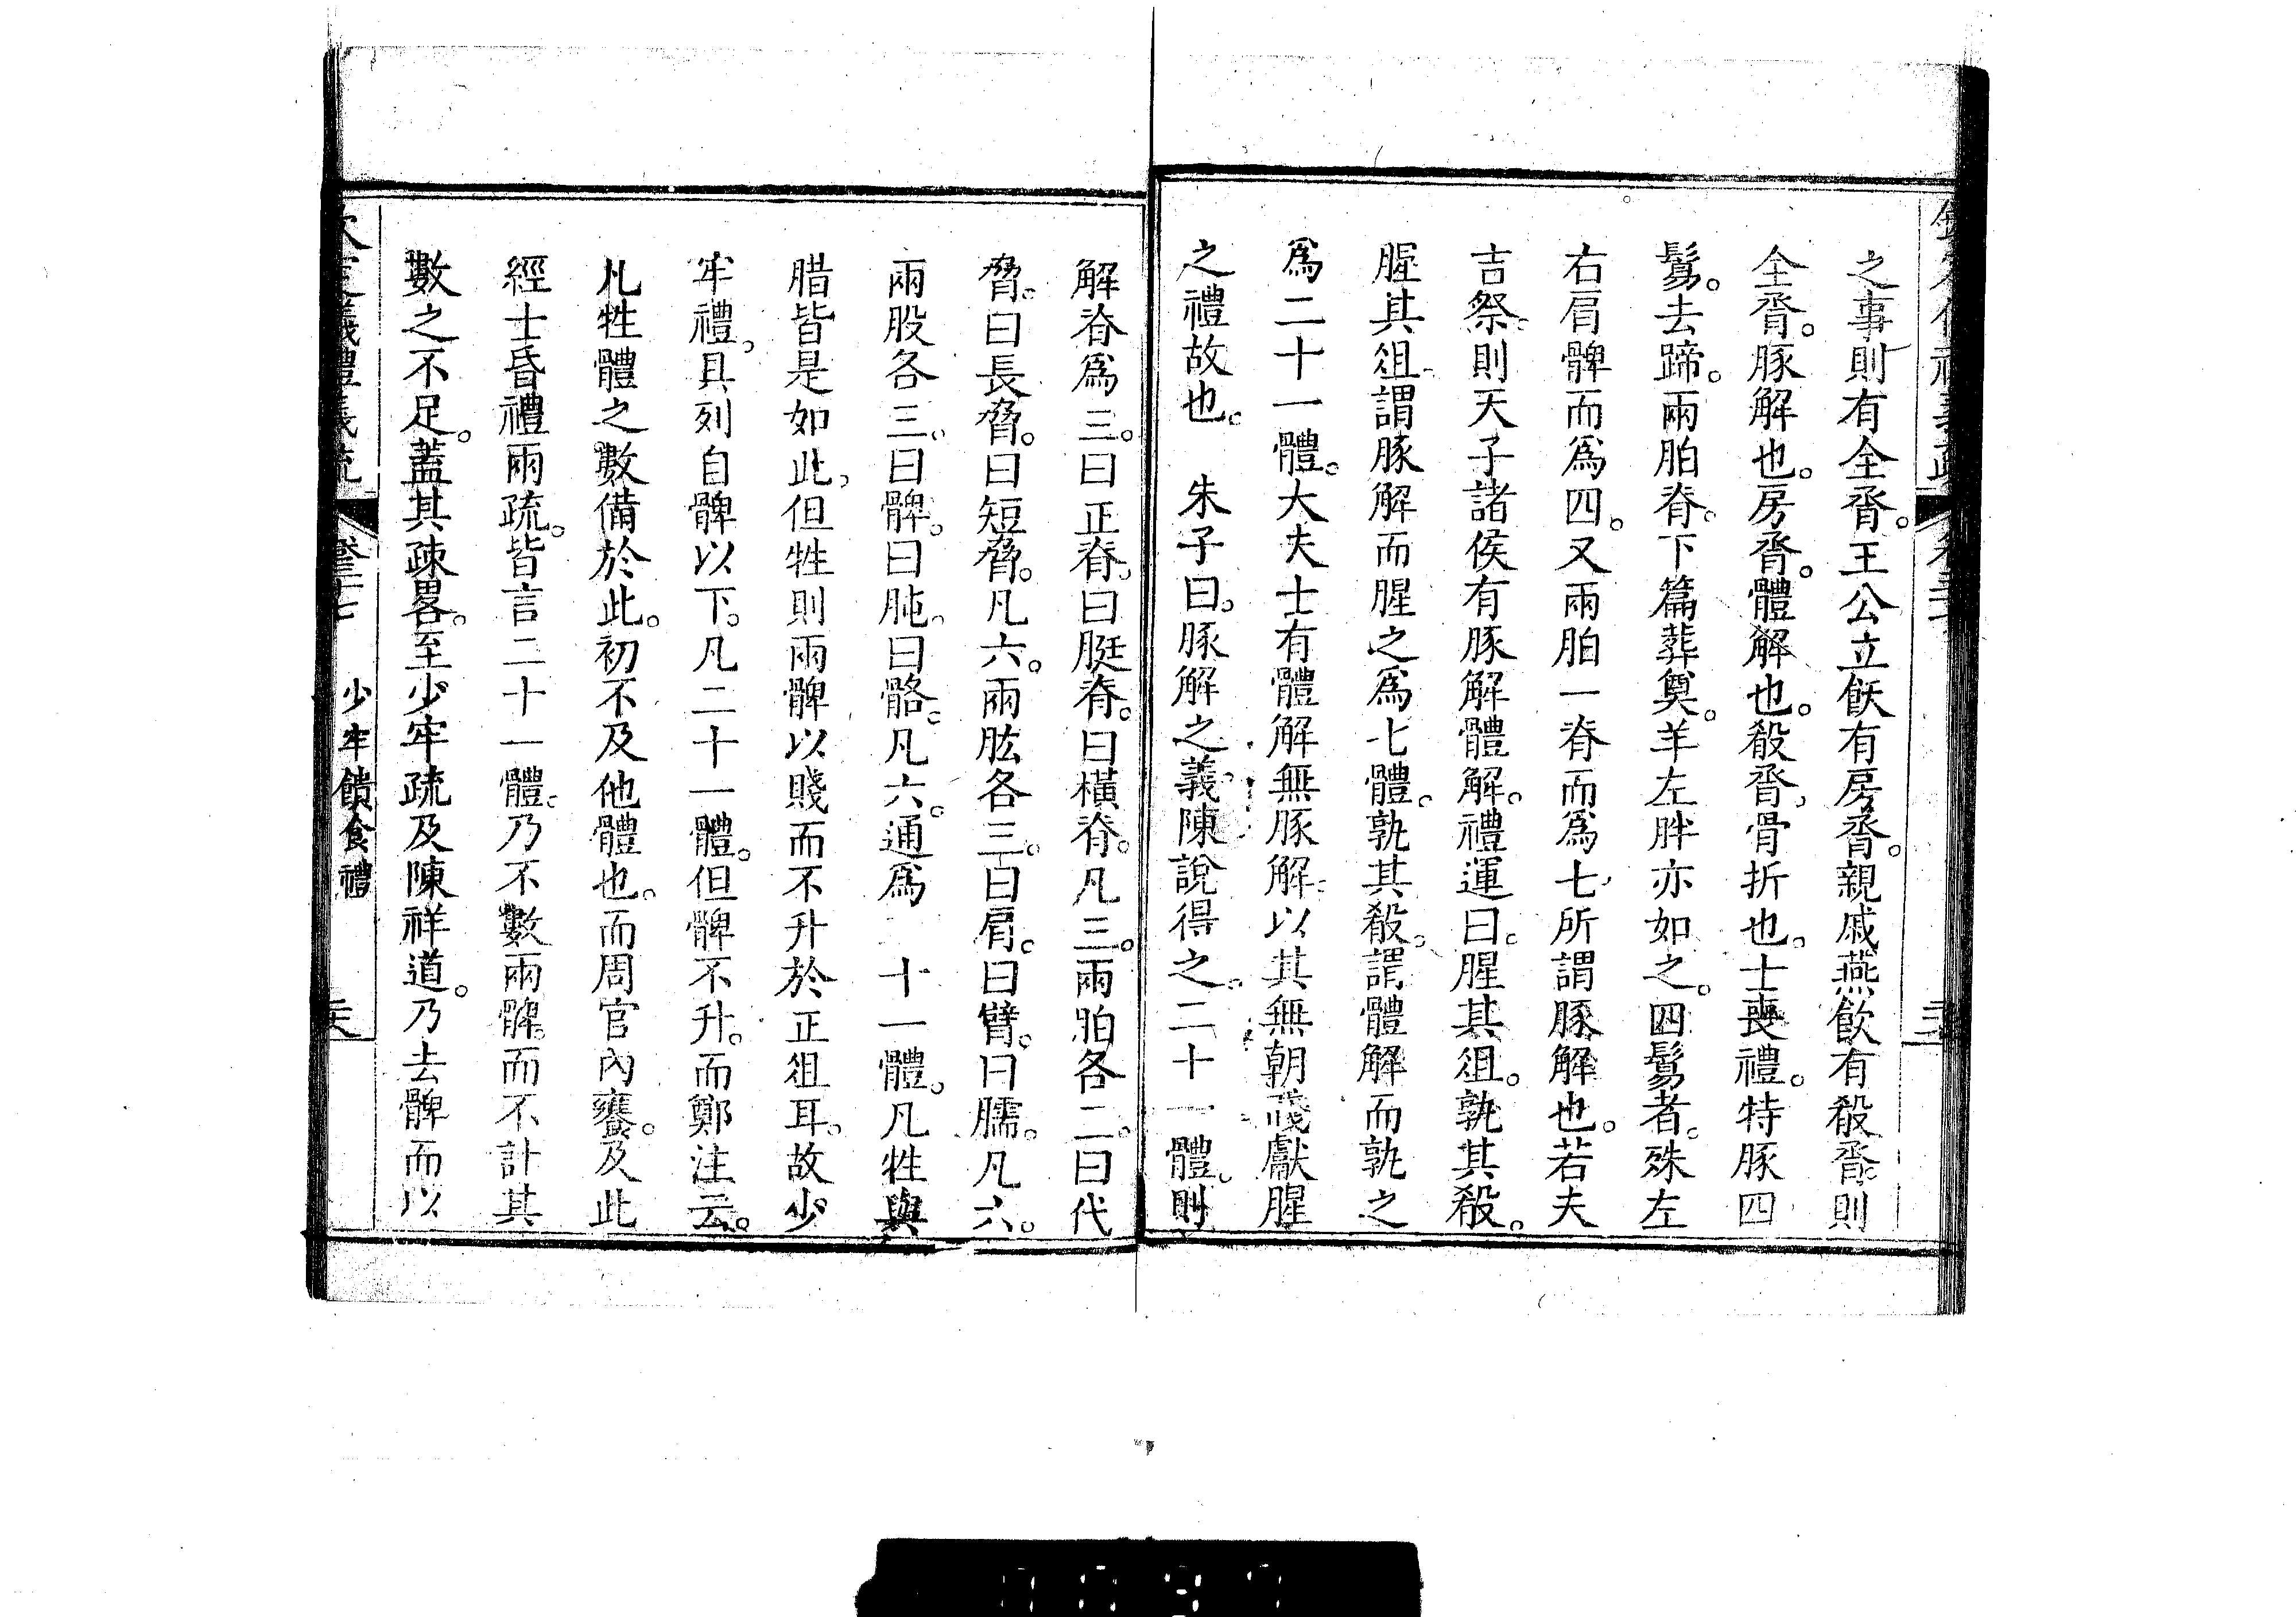 之事則有全脀。王公立飫有房脀。親戚燕飲有殽脀。則
全脀。豚解也。房脀。體解也。殽脀。骨折也。士喪禮。特豚四
鬄。去蹄。兩胉脊。下篇葬奠。羊左胖亦如之。四鬄者。殊左
右肩髀而爲四。又兩胉一脊而爲七。所謂豚解也。若夫
吉祭。則天子諸侯有豚解體解。禮運曰。腥其俎。孰其殽。
腥其俎。謂豚解而腥之爲七體。孰其殽。謂體解而孰之
爲二十一體。大夫士有體解無豚解。以其無朝踐獻腥
之禮故也。　朱子曰。豚解之義。陳說得之。二十一體。則
解脊爲三。曰正脊。曰脡脊。曰橫脊。凡三。兩胉各二。曰代
脅。曰長脅。曰短脅。凡六。兩肱各三。曰肩。曰臂。曰臑。凡六。
兩股各三。曰髀。曰肫。曰骼。凡六。通爲　十一體。凡牲與
腊皆是如此。但牲則兩髀以賤而不升於正俎耳。故少
牢禮。具列自髀以下。凡二十一體。但髀不升。而鄭注云。
凡牲體之數備於此。初不及他體也。而周官內饔。及此
經士昏禮兩疏。皆言二十一體。乃不數兩髀。而不計其
數之不足。蓋其疎畧。至少牢疏及陳祥道。乃去髀而以
少牢饋食禮